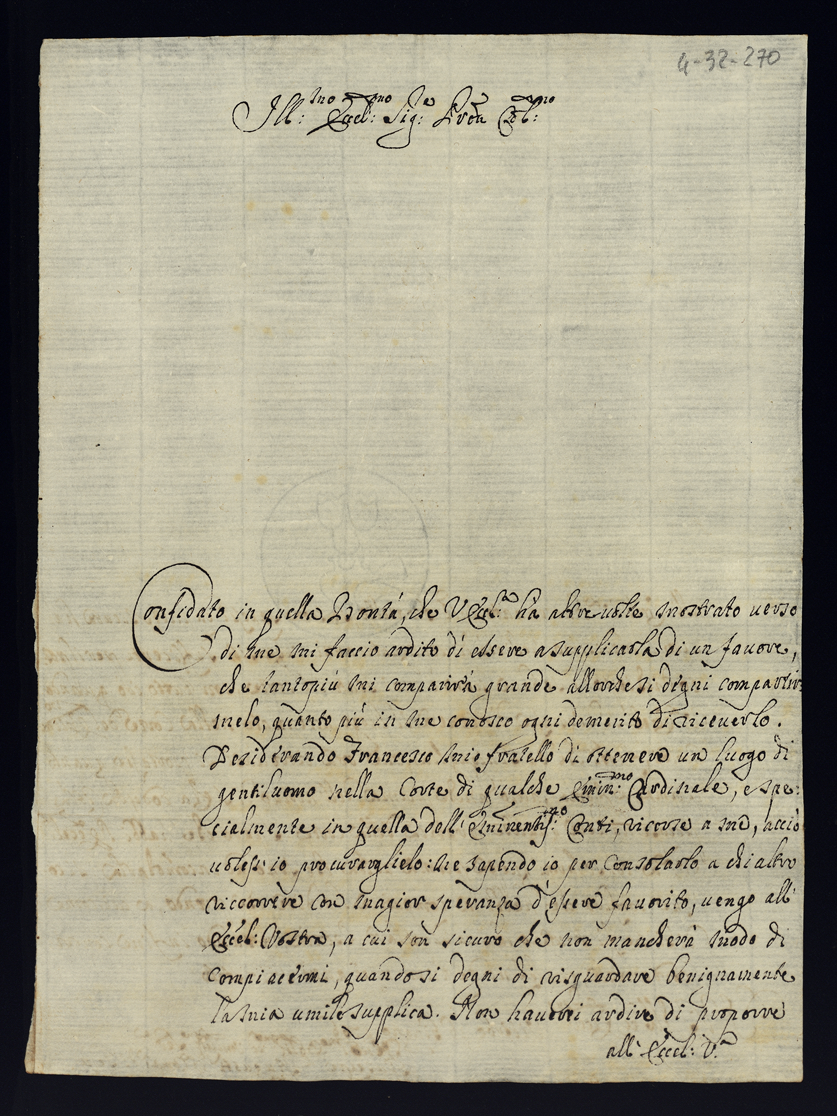 4-32-270
Ill:mo Eccel:mo Sig:re Pron Col:mo
Confidato in quella Bontà, che V Eccel:za hà altre uolte mostrato uerso
di me mi faccio ardito di essere a supplicarla di un fauore,
che tantopiù mi comparirà grande allorche si degni compartir:
melo, quanto più in me conosco ogni demerito di riceuerlo.
Desiderando Francesco mio fratello di ottenere un luogo di
gentiluomo nella Corte di qualche Emin:mo Cardinale, e spe:
cialmente in quella dell' Eminentis:mo Conti, ricorse a me, acciò
uoless' io procurarglielo: ne sapendo io per consolarlo a chi altro
riccorrere con magior speranza d'essere fauorito, uengo all'
Eccel: Vostra, a cui son sicuro che non mancherà modo di
compiacermi, quando si degni di risguardare benignamente
la mia umile supplica. Non hauerei ardire di proporre
all' Eccel: V.ra